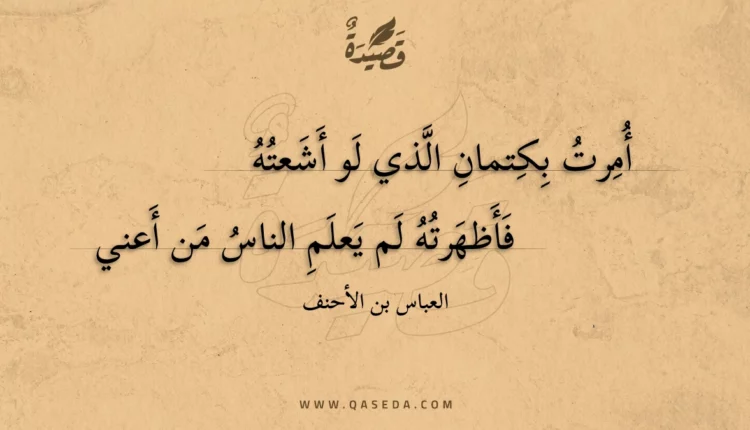 قَصِيدَةٌ
أُمِرتُ بِكِتمانِ الَّذي لَو أَشَعتُهُ
فَأَظهَرتُهُ لَم يَعلَمِ الناسُ مَن أَعني
العباس بن الأحنف
WWW.QASEDA.COM